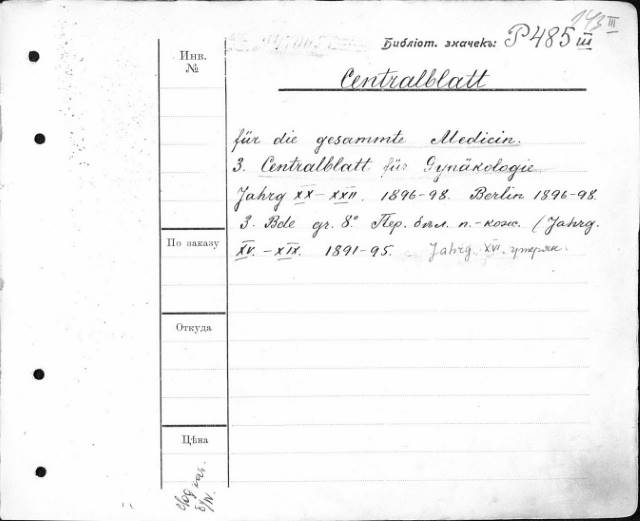 143 III
Библіот. значекъ: P485 III
Инв.
№
Centralblatt
für die gesammte Medicin.
3. Centralblatt für Gynäkologie
Jahrg XX–XXII. 1896–98. Berlin 1896–98.
3. Bde gr. 8° Пер. бѣл. п.-кож. (Jahrg.
XV.–XIX. 1891–95. Jahrg. XVI. утерян.
По заказу
Откуда
Цѣна